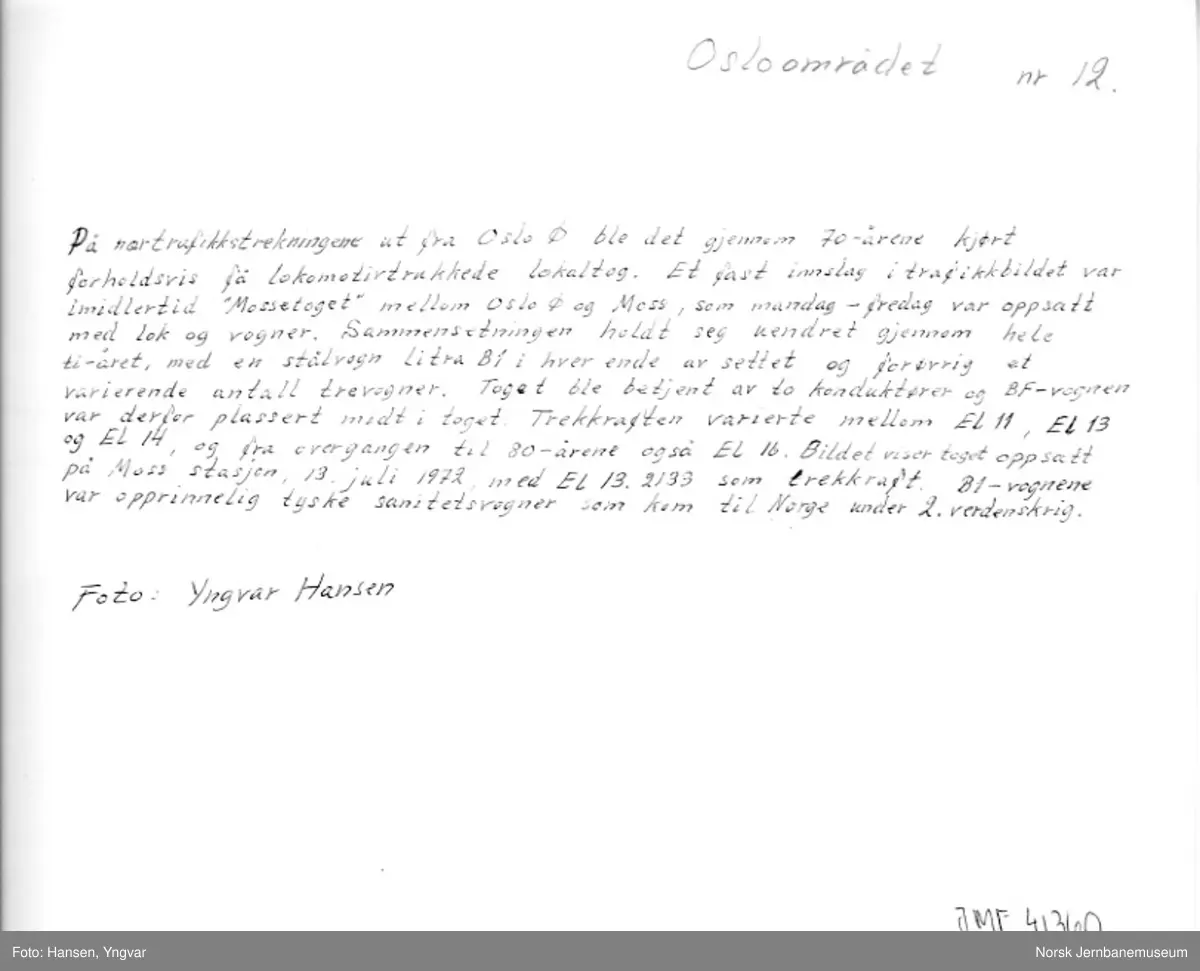 Osloområdet nr 12.
På nærtrafikkstrekningene ut fra Oslo Ø ble det gjennom 70-årene kjørt
forholdsvis få lokomotivtrukkede lokaltog. Et fast innslag i trafikkbildet var
imidlertid "Mossetoget" mellom Oslo Ø og Moss, som mandag - fredag var oppsatt
med lok og vogner. Sammensetningen holdt seg uendret gjennom hele
ti-året, med en stålvogn litra B1 i hver ende av settet og forøvrig et
varierende antall trevogner. Toget ble betjent av to konduktører og BF-vognen
var derfor plassert midt i toget. Trekkraften varierte mellom El 11, El 13
og El 14, og fra overgangen til 80-årene også El 16. Bildet viser toget oppsatt
på Moss stasjon, 13. juli 1972, med El 13.2133 som trekkraft. B1-vognene
var opprinnelig tyske sanitetsvogner som kom til Norge under 2. verdenskrig.
Foto: Yngvar Hansen
JMF 41360
Foto: Hansen, Yngvar
Norsk Jernbanemuseum